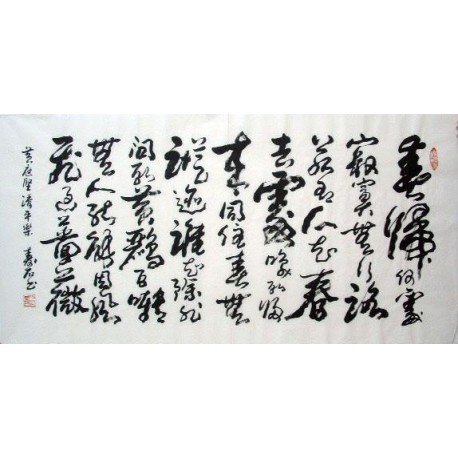 春歸何處
寂寞無行路
若有人知春
去處喚取歸
來同住春無
踪迹誰知除非
問取黃鸝百囀
無人能解因風
飛過薔薇
黃庭堅清平樂